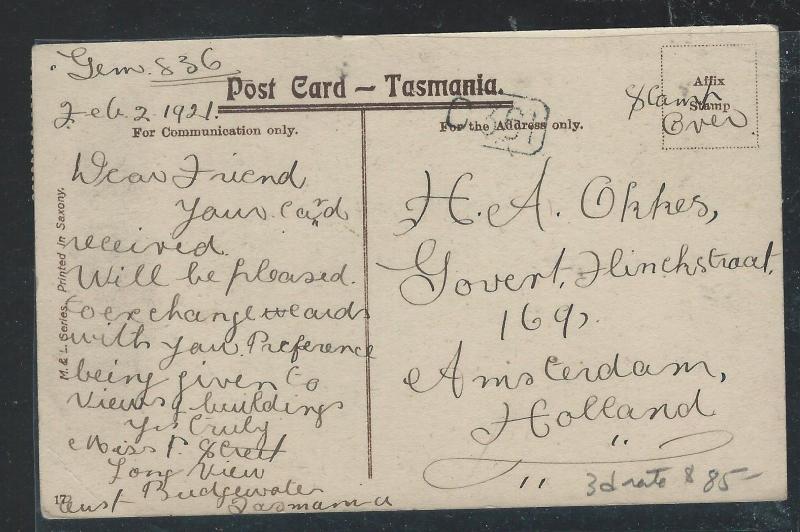 Gem. 836
Feb. 2. 1921.
Post Card – Tasmania.
For Communication only.
For the Address only.
Affix
Stamp
Stamp
Over
Dear Friend
Your Card
received.
Will be pleased.
to exchange cards
with you. Preference
being given to
views & buildings
Yrs truly
Miss P. Street
Long View
Bridgewater
Tasmania
M. & L. Series. Printed in Saxony.
17
H. A. Okkes,
Govert. Flinckstraat,
169
Amsterdam,
Holland
3d rate $ 85-